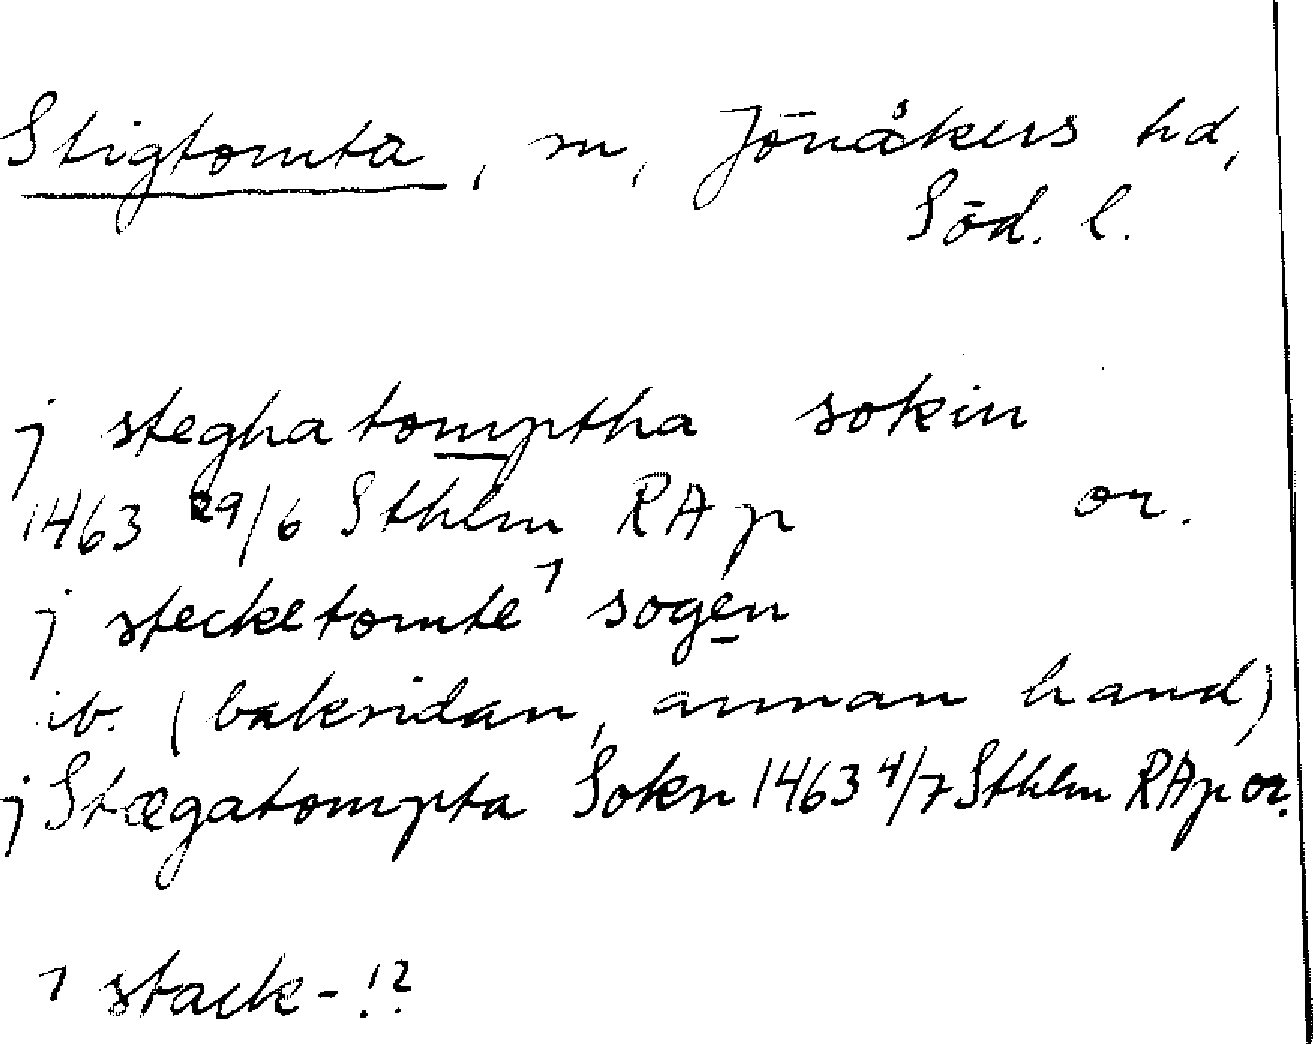 Stigtomta, sn, Jönåkers hd,
Söd. l.
j steghatomptha sokin
1463 29/6 Sthlm RAp or.
j stecketomte¹ sogen
ib. (baksidan, annan hand)
j Stægatompta Sokn 1463 4/7 Sthlm RAp or.
¹ stack-!?